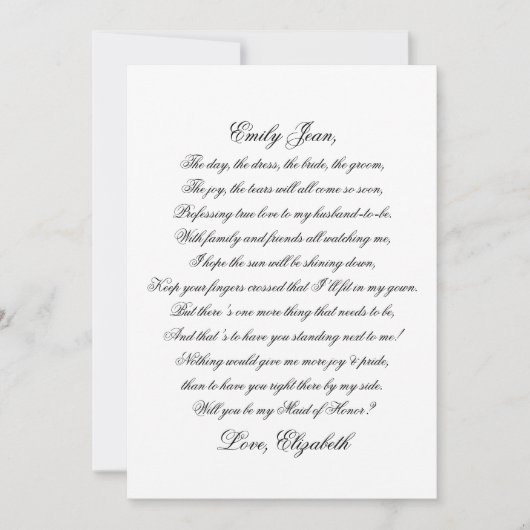 Emily Jean,
The day, the dress, the bride, the groom,
The joy, the tears will all come so soon,
Professing true love to my husband-to-be.
With family and friends all watching me,
I hope the sun will be shining down,
Keep your fingers crossed that I'll fit in my gown.
But there's one more thing that needs to be,
And that's to have you standing next to me!
Nothing would give me more joy & pride,
than to have you right there by my side.
Will you be my Maid of Honor?
Love, Elizabeth